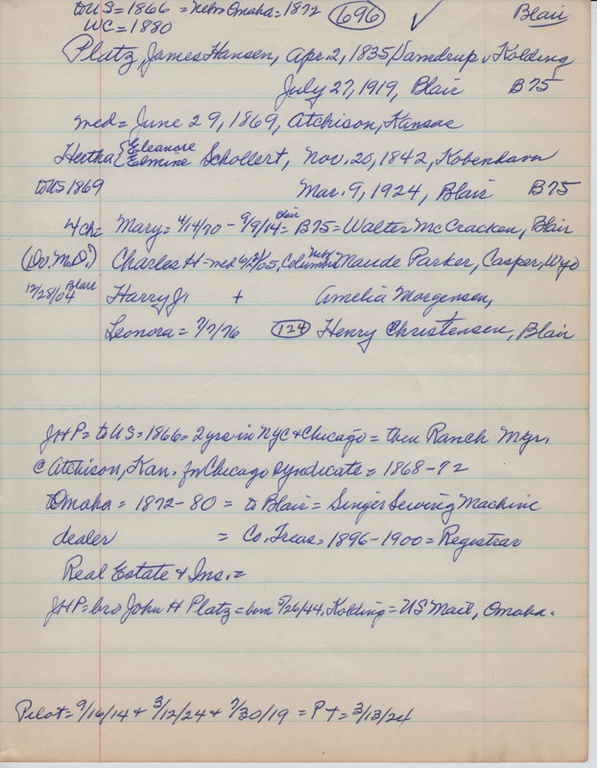 to US = 1866 = Nebr Omaha = 1872 (696) ✓ Blair
WC = 1880
Platz, James Hansen, Apr. 2, 1835, Vamdrup v Kolding
July 27, 1919, Blair B75
med = June 29, 1869, Atchison, Kansas
Hertha { Eleanore
Edmine Schollert, Nov. 20, 1842, Kobenhavn
to US 1869 Mar. 9, 1924, Blair B75
4 ch = Mary = 4/14/70 - 9/9/14 = Blair B75 = Walter McCracken, Blair
(Dr. M.D.) Charles H = med 6/12/05, Columbus Nebr Maude Parker, Casper, Wyo
12/28/04 Blair Harry J, + Amelia Morgensen,
Leonora = 7/7/76 (124) Henry Christensen, Blair
JHP = to US = 1866 = 2 yrs in NYC & Chicago = then Ranch Mgr.
@ Atchison, Kan. for Chicago Syndicate = 1868-72
to Omaha = 1872-80 = to Blair = Singer Sewing Machine
dealer = Co. Treas = 1896-1900 = Registrar
Real Estate & Ins. =
JHP = bro John H Platz = born 5/26/44, Kolding = US Mail, Omaha.
Pilot = 9/16/14 & 3/12/24 & 7/30/19 = PT = 3/13/24